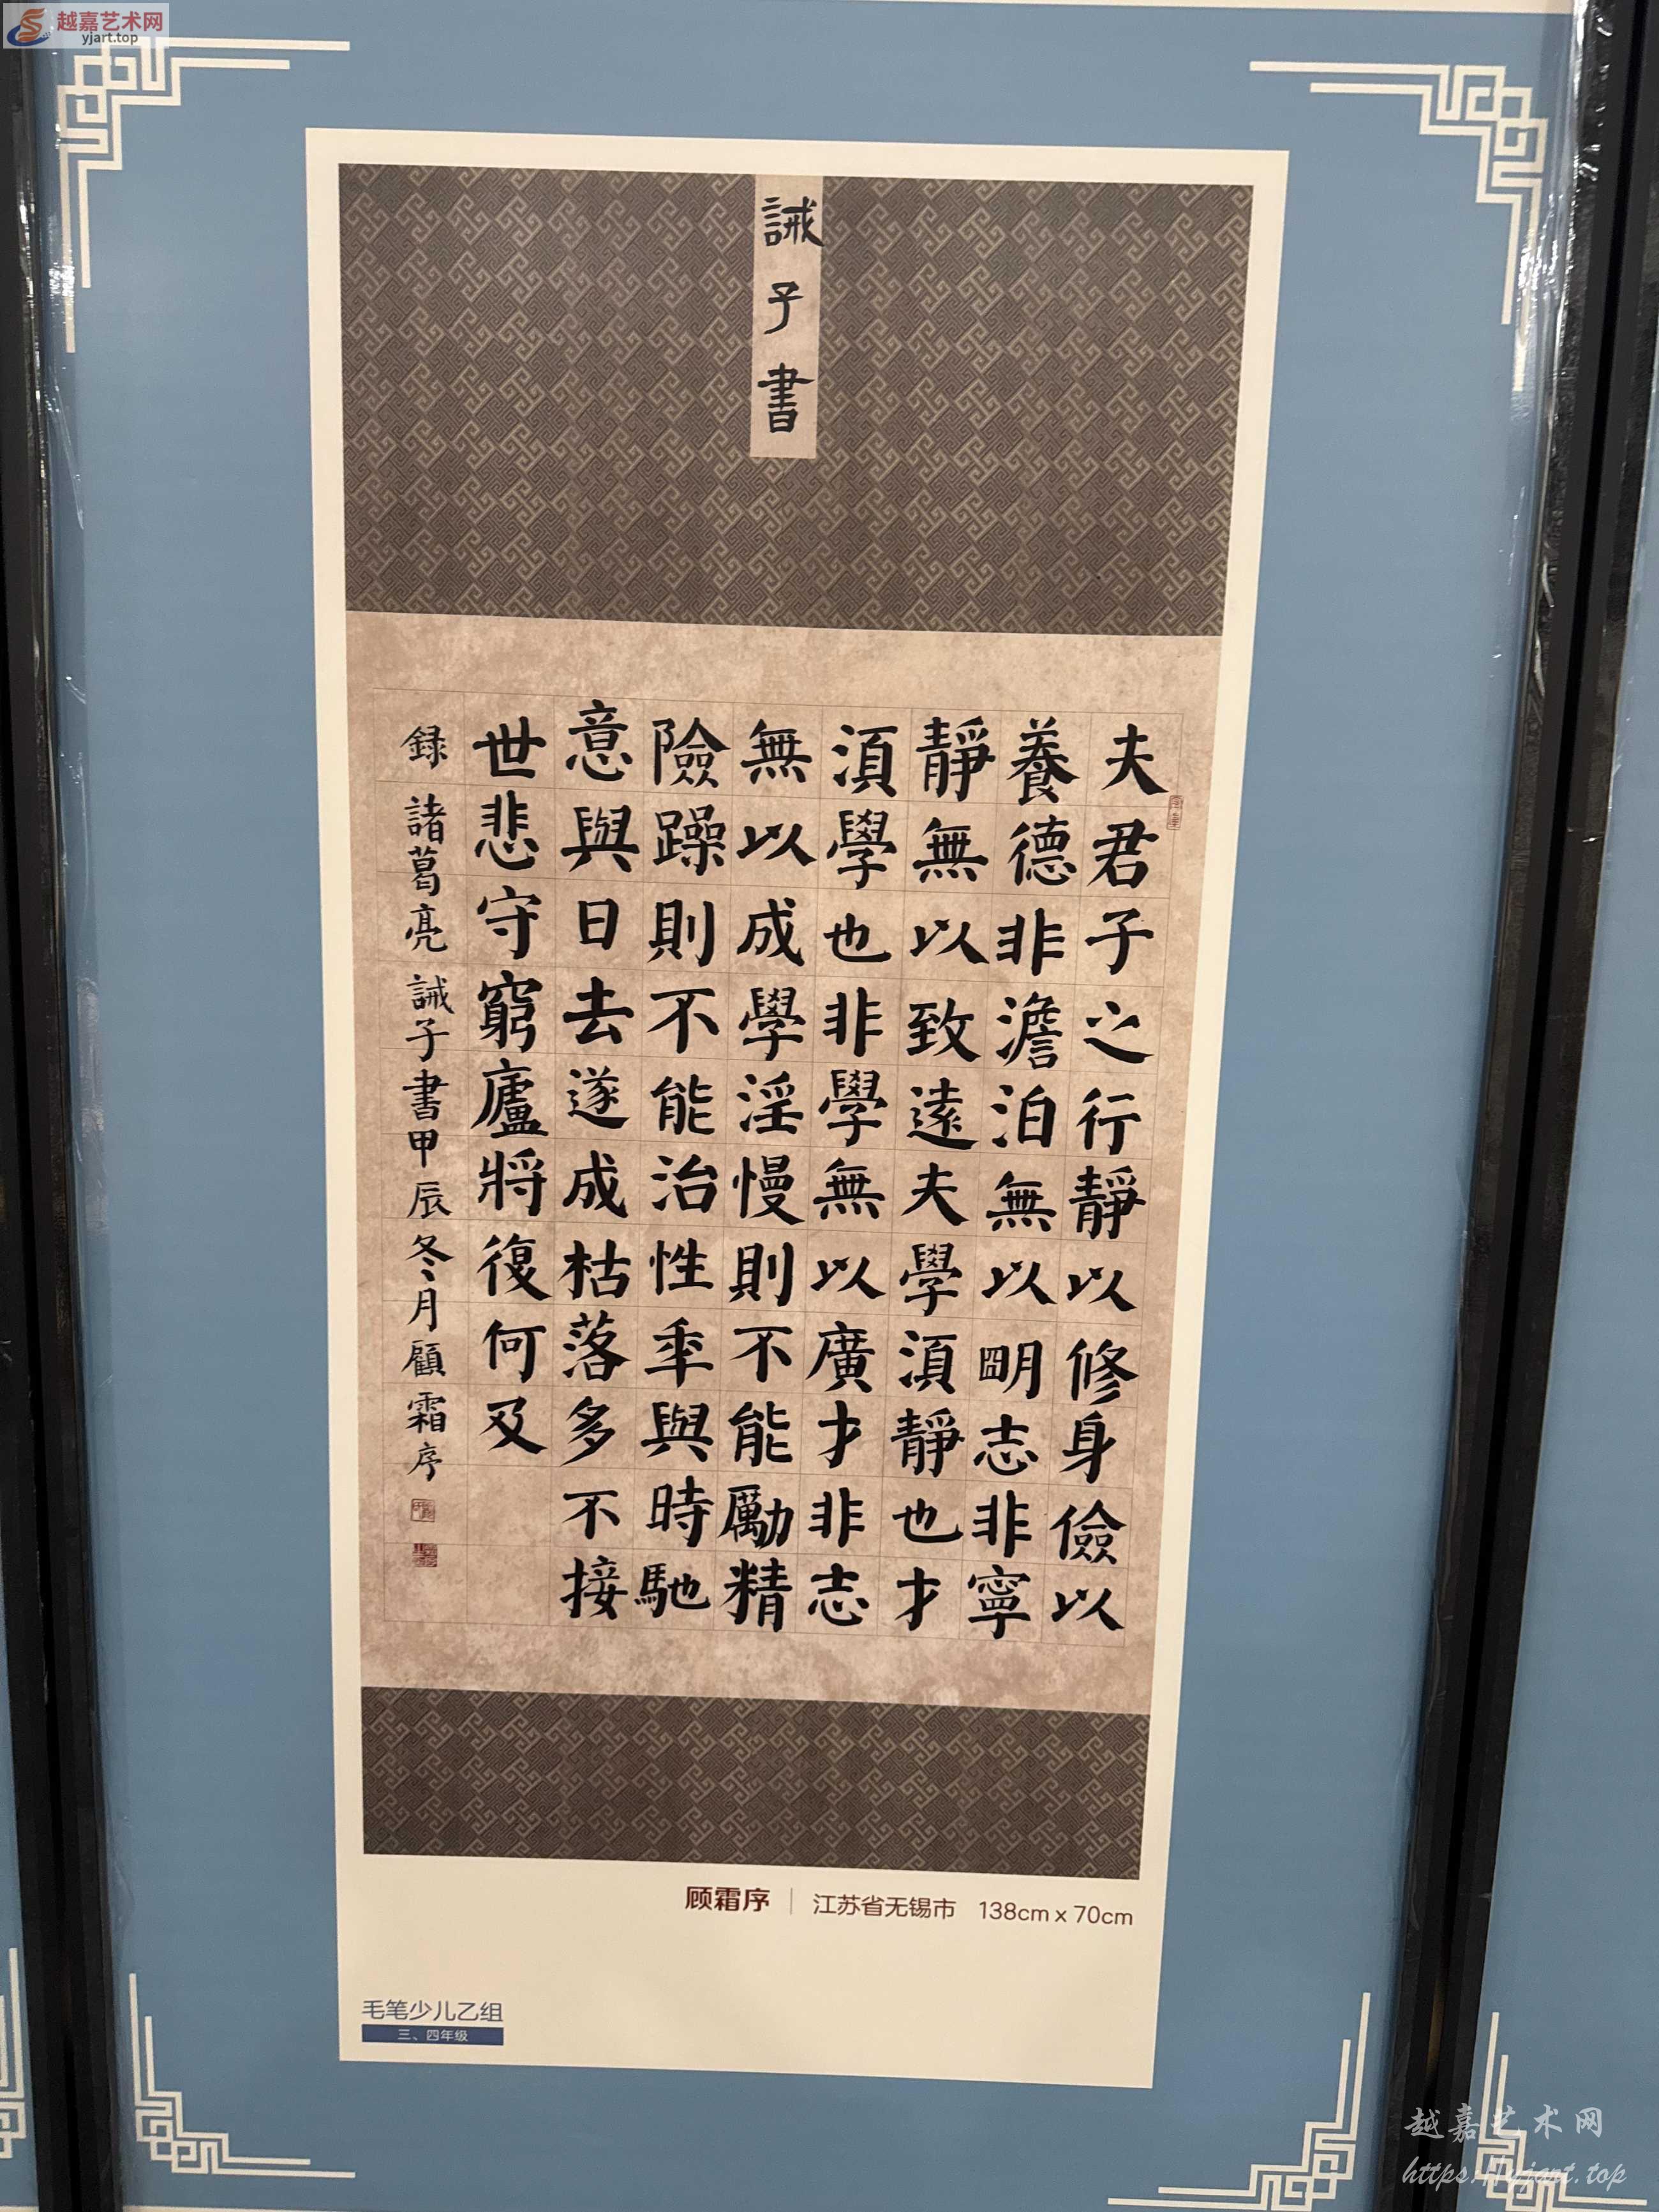 越嘉艺术网
yjart.top
誡子書
夫君子之行靜以修身儉以
養德非澹泊無以朙志非寧
靜無以致遠夫學湏靜也才
湏學也非學無以廣才非志
無以成學淫慢則不能勵精
險躁則不能治性年與時馳
意與日去遂成枯落多不接
世悲守窮廬將復何及
録諸葛亮誡子書甲辰冬月顧霜序
顾霜序 | 江苏省无锡市 138cm x 70cm
毛笔少儿乙组
三、四年级
越嘉艺术网
https://yjart.top